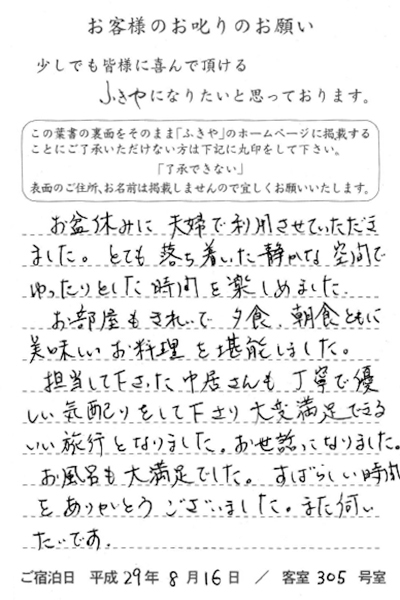 お客様のお叱りのお願い
少しでも皆様に喜んで頂ける
ふきやになりたいと思っております。
この葉書の裏面をそのまま「ふきや」のホームページに掲載する
ことにご了承いただけない方は下記に丸印をして下さい。
「了承できない」
表面のご住所、お名前は掲載しませんので宜しくお願いいたします。
お盆休みに 夫婦で利用させていただき
ました。とても 落ち着いた静かな空間で
ゆったりとした時間を楽しめました.
お部屋もきれいで 夕食、朝食ともに
美味しいお料理を堪能しました。
担当して下さった中居さんも丁寧で優
しい気配りをして下さり大変満足できる
いい旅行となりました。お世話になりました。
お風呂も大満足でした。すばらしい時間
をありがとうございました。また伺い
たいです.
ご宿泊日 平成29年 8月16日 / 客室 305 号室